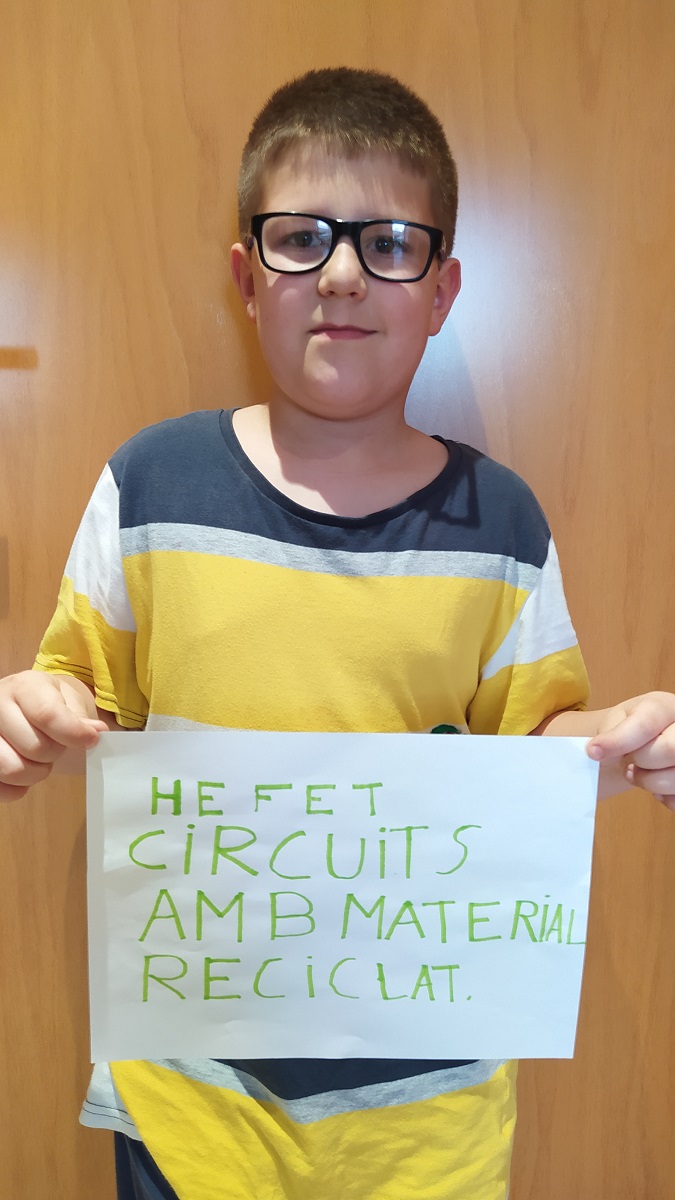 HE FET
CiRCUiTS
AMB MATERiAL
RECiCLAT.